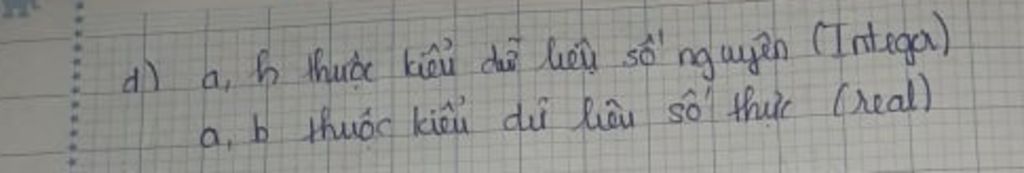 d) a, b thuộc kiểu dữ liệu số nguyên (Integer)
a, b thuộc kiểu dữ liệu số thực (real)